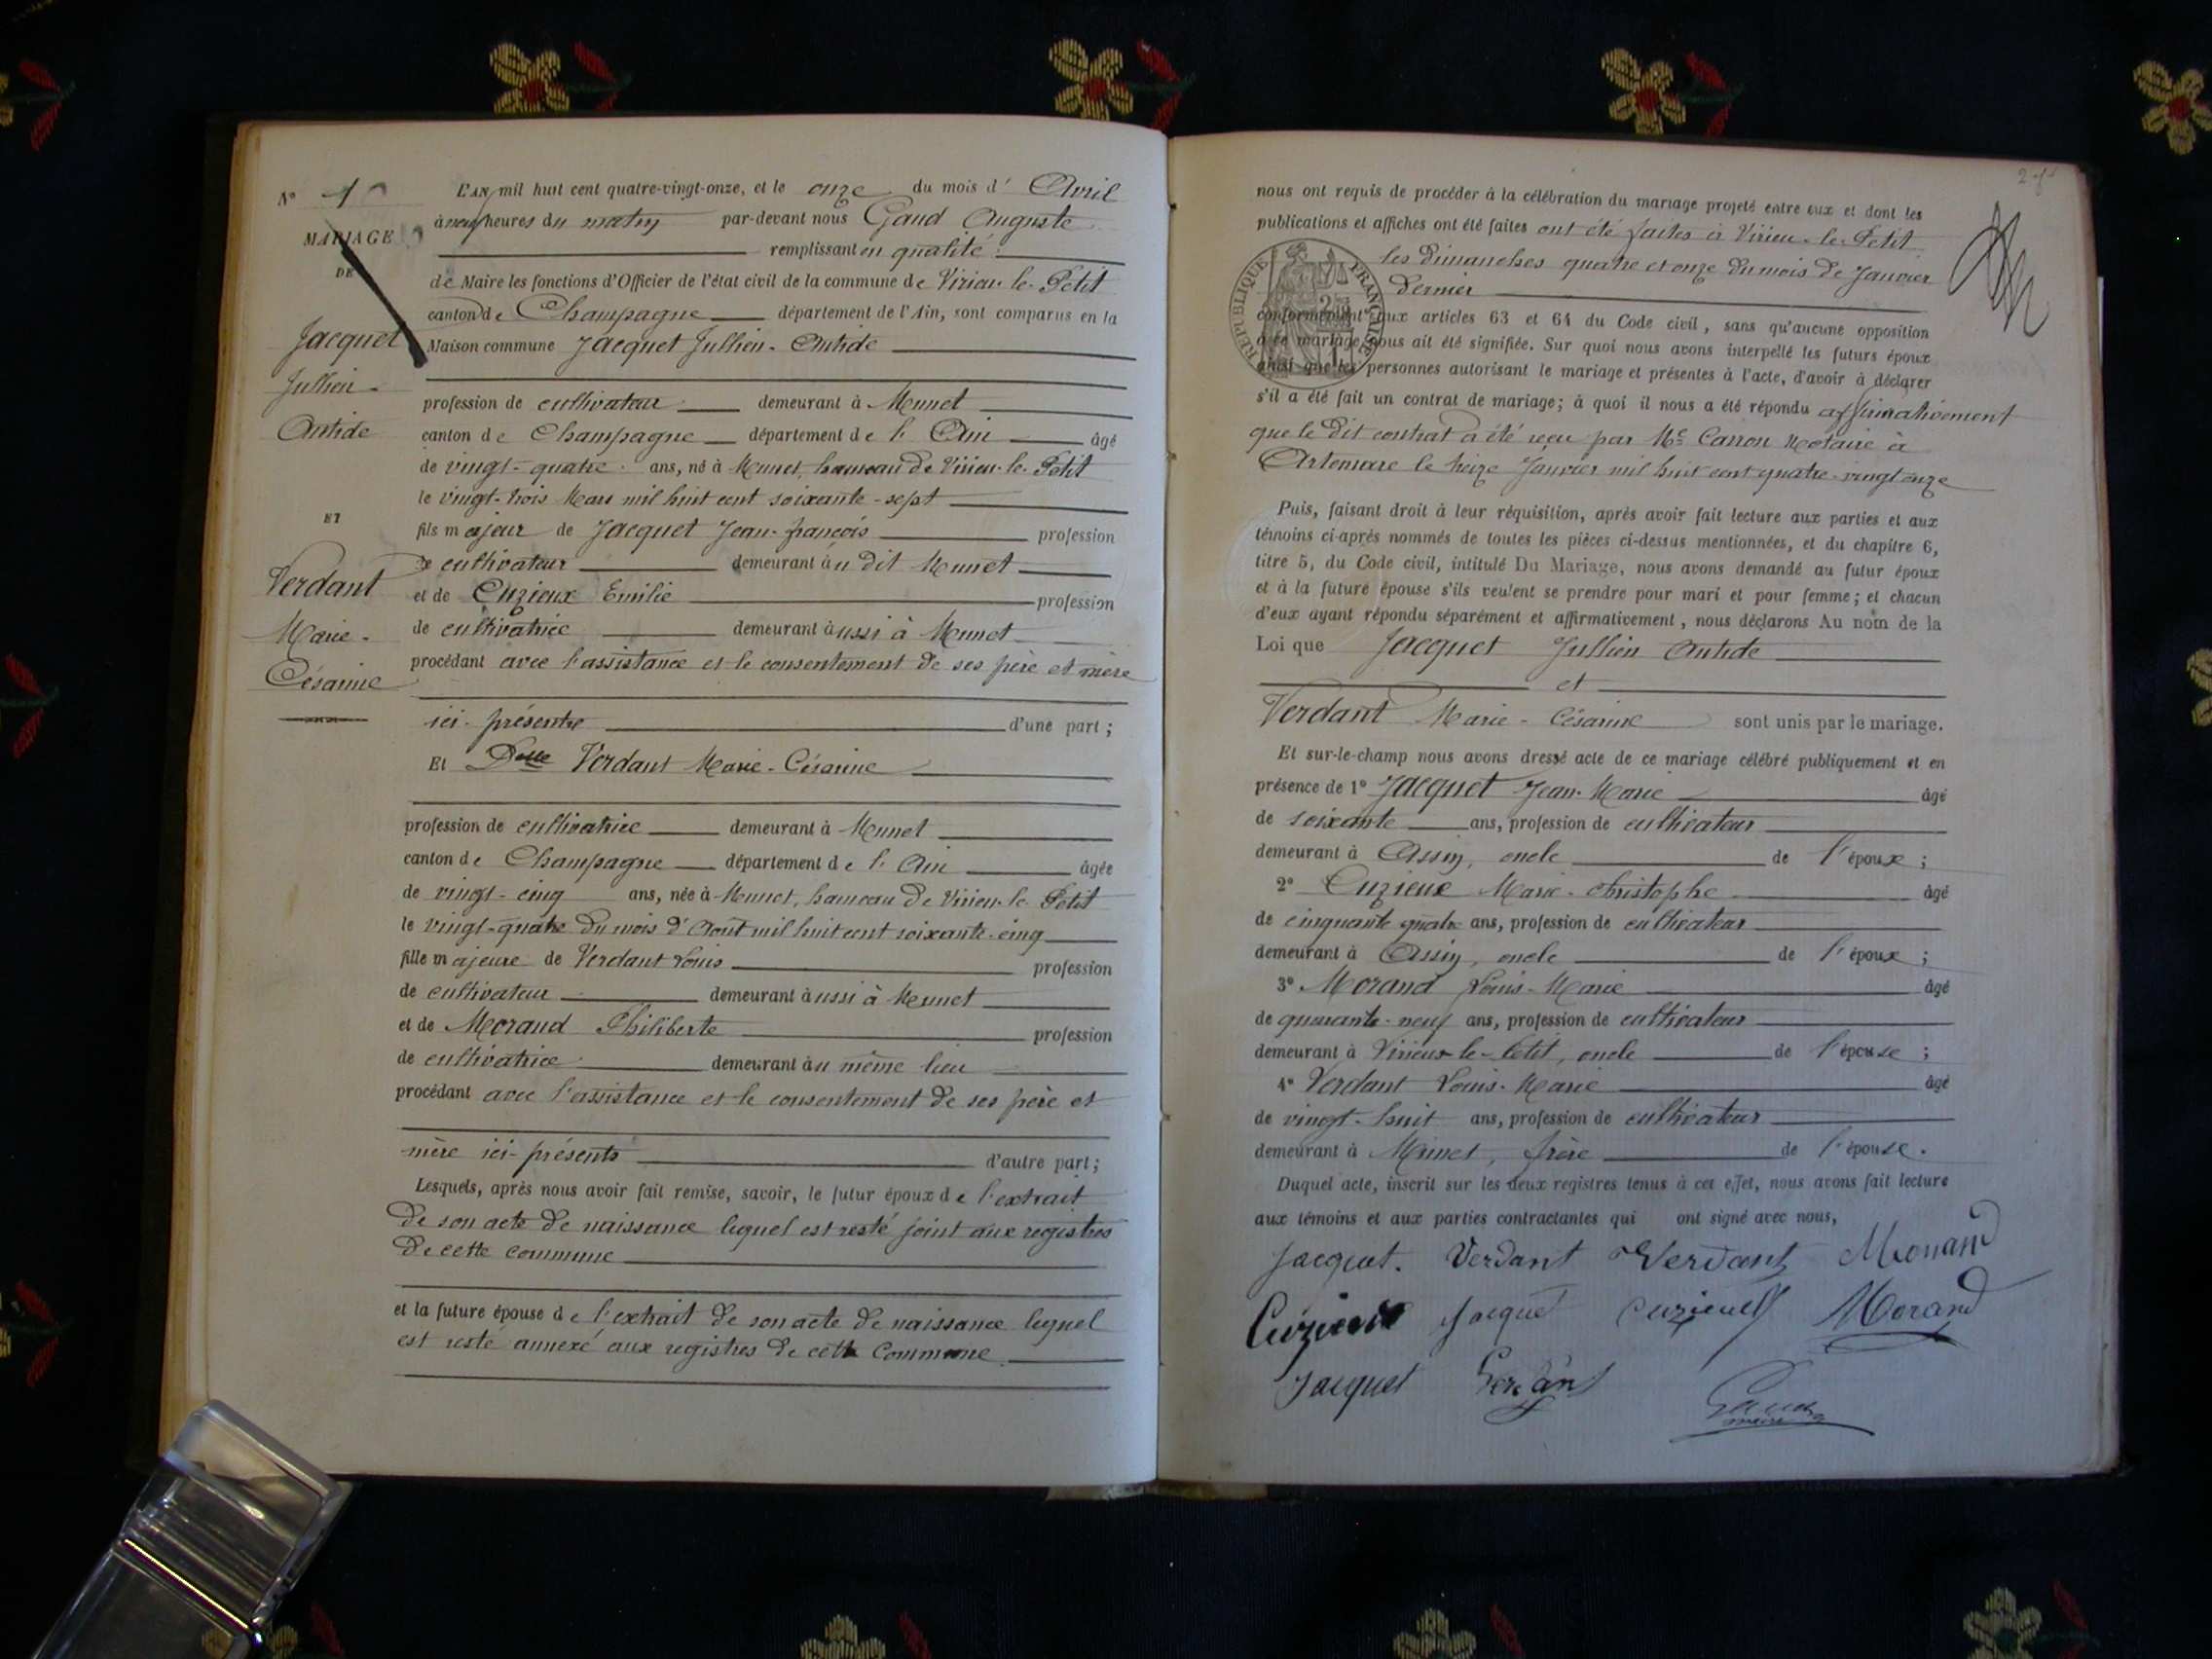 N° 1
MARIAGE
DE
Jacquet
Jullien-
Antide
ET
Verdant
Marie-
Césarine
L'AN mil huit cent quatre-vingt-onze, et le onze du mois d' Avril
à neuf heures du matin par-devant nous Gaud Auguste
remplissant en qualité
de Maire les fonctions d'Officier de l'état civil de la commune de Virieu-le-Petit
canton de Champagne département de l'Ain, sont comparus en la
Maison commune Jacquet Jullien-Antide
profession de cultivateur demeurant à Munet
canton de Champagne département de l'Ain âgé
de vingt-quatre ans, né à Munet, hameau de Virieu-le-Petit
le vingt-trois Mars mil huit cent soixante-sept
fils majeur de Jacquet Jean-françois profession
de cultivateur demeurant au dit Munet
et de Cuzieux Emilie profession
de cultivatrice demeurant aussi à Munet
procédant avec l'assistance et le consentement de ses père et mère
ici-présents d'une part;
Et Delle Verdant Marie-Césarine
profession de cultivatrice demeurant à Munet
canton de Champagne département de l'Ain âgée
de vingt-cinq ans, née à Munet, hameau de Virieu-le-Petit
le vingt-quatre du mois d'Août mil huit cent soixante-cinq
fille majeure de Verdant Louis profession
de cultivateur demeurant aussi à Munet
et de Morand Philiberte profession
de cultivatrice demeurant au même lieu
procédant avec l'assistance et le consentement de ses père et
mère ici-présents d'autre part;
Lesquels, après nous avoir fait remise, savoir, le futur époux de l'extrait
de son acte de naissance lequel est resté joint aux registres
de cette commune
et la future épouse de l'extrait de son acte de naissance lequel
est resté annexé aux registres de cette commune
nous ont requis de procéder à la célébration du mariage projeté entre eux et dont les
publications et affiches ont été faites ont été faites à Virieu-le-Petit
les dimanches quatre et onze du mois de Janvier
dernier
RÉPUBLIQUE FRANÇAISE
conformément aux articles 63 et 64 du Code civil, sans qu'aucune opposition
à ce mariage nous ait été signifiée. Sur quoi nous avons interpellé les futurs époux
ainsi que les personnes autorisant le mariage et présentes à l'acte, d'avoir à déclarer
s'il a été fait un contrat de mariage; à quoi il nous a été répondu affirmativement
que le dit contrat a été reçu par Me Carron Notaire à
Artemare le treize Janvier mil huit cent quatre-vingt onze
Puis, faisant droit à leur réquisition, après avoir fait lecture aux parties et aux
témoins ci-après nommés de toutes les pièces ci-dessus mentionnées, et du chapitre 6,
titre 5, du Code civil, intitulé Du Mariage, nous avons demandé au futur époux
et à la future épouse s'ils veulent se prendre pour mari et pour femme; et chacun
d'eux ayant répondu séparément et affirmativement, nous déclarons Au nom de la
Loi que Jacquet Jullien Antide
et
Verdant Marie-Césarine sont unis par le mariage.
Et sur-le-champ nous avons dressé acte de ce mariage célébré publiquement et en
présence de 1° Jacquet Jean-Marie âgé
de soixante ans, profession de cultivateur
demeurant à Assin, oncle de l'époux;
2° Cuzieux Marie-Christophe âgé
de cinquante quatre ans, profession de cultivateur
demeurant à Assin, oncle de l'époux;
3° Morand Louis-Marie âgé
de quarante-neuf ans, profession de cultivateur
demeurant à Virieu-le-Petit, oncle de l'épouse;
4° Verdant Louis-Marie âgé
de vingt-huit ans, profession de cultivateur
demeurant à Munet, frère de l'épouse.
Duquel acte, inscrit sur les deux registres tenus à cet effet, nous avons fait lecture
aux témoins et aux parties contractantes qui ont signé avec nous,
Jacquet. Verdant Verdant Morand
Cuzieux Jacquet Cuzieux Morand
Jacquet Verdant
Gaud
maire